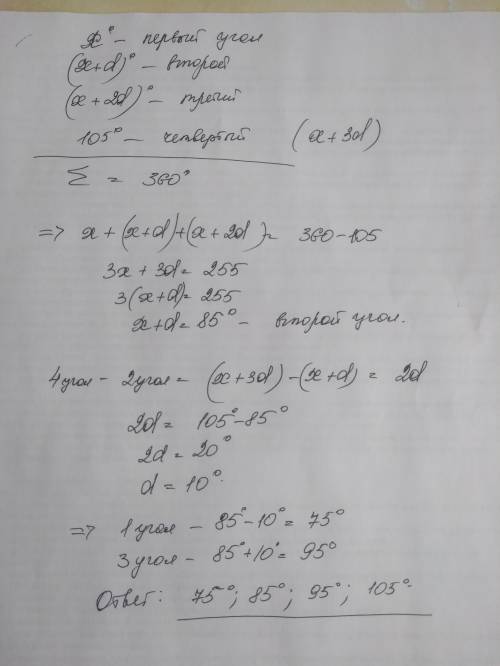 x° – первый угол
(x+d)° – второй
(x+2d)° – третий
105° – четвертый (x+3d)
Σ = 360°
=> x + (x+d)+(x+2d)= 360-105
3x + 3d = 255
3(x+d)= 255
x+d = 85° – второй угол.
4 угол – 2 угол = (x+3d) -(x+d) = 2d
2d = 105°-85°
2d = 20°
d = 10°.
=> 1 угол – 85°-10°= 75°
3 угол – 85°+10°= 95°
Ответ: 75°; 85°; 95°; 105°.